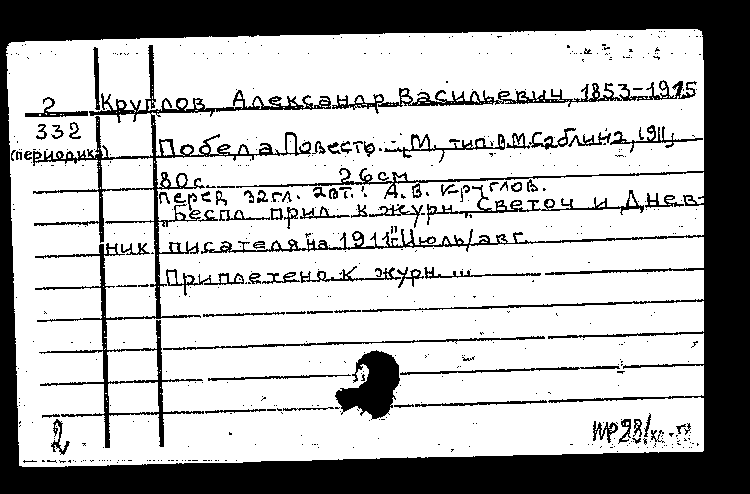 2 Круглов, Александр Васильевич, 1853-1915
332
(периодика) Победа. Повесть. - М., тип. В.М. Саблина, 1911,
80 с. 26 см
перед загл. авт.: А.В. Круглов.
"Беспл. прил. к журн. "Светоч и Днев-
ник писателя на 1911" Июль/авг.
Приплетено к журн. ...
2